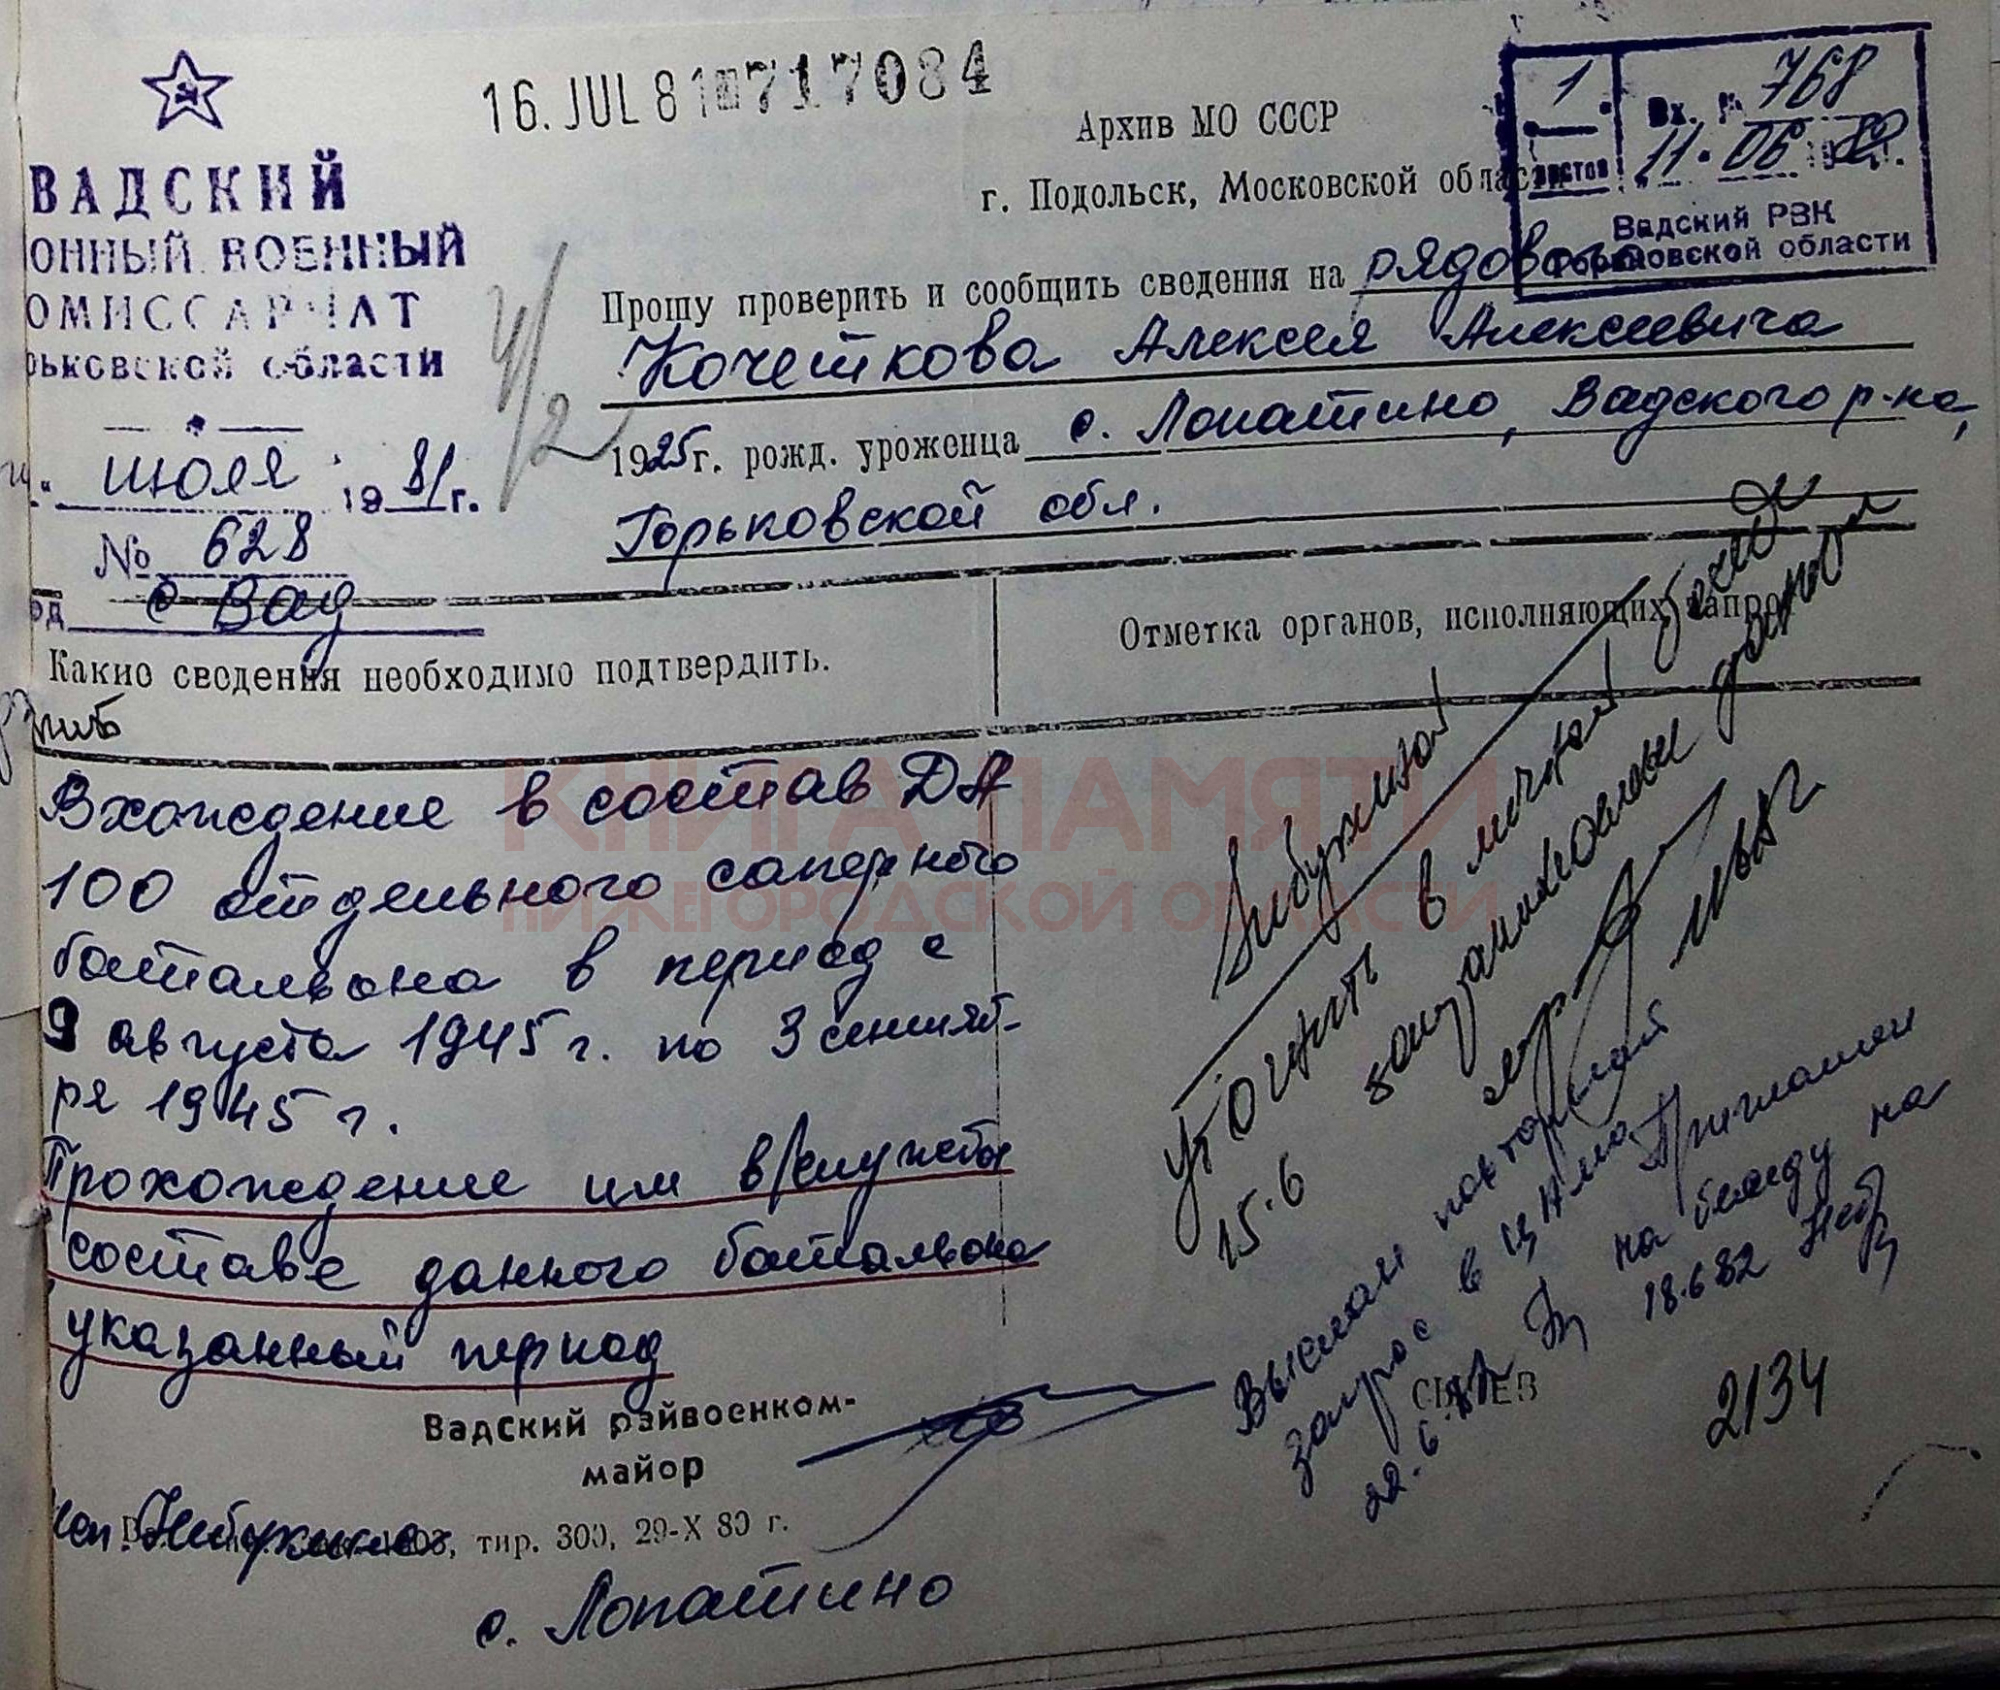 16. JUL 81 717084
Архив МО СССР
г. Подольск, Московской области
1
листов
Вх. № 768
11. 06. 1982 г.
Вадский РВК
Горьковской области
ВАДСКИЙ
ОННЫЙ ВОЕННЫЙ
ОМИССАРИАТ
рьковской области
июля 1981 г.
№ 628
од с Вад
4/2
Прошу проверить и сообщить сведения на рядового
Кочеткова Алексея Алексеевича
1925 г. рожд. уроженца с. Лопатино, Вадского р-на,
Горьковской обл.
Какие сведения необходимо подтвердить.
Отметка органов, исполняющих запрос
Вхождение в состав ДА
100 отдельного саперного
батальона в период с
9 августа 1945 г. по 3 сентяб-
ря 1945 г.
Прохождение им в/службы
составе данного батальона
указанный период
Вадский райвоенком-
майор
СЫЧЕВ
тир. 300, 29-X 80 г.
с. Лопатино
уточнить в личной беседе
15.6
Выслан повторный
запрос в ЦАМО
22.6.82
Приглашен
на беседу на
18.6.82
2134
КНИГА ПАМЯТИ
НИЖЕГОРОДСКОЙ ОБЛАСТИ